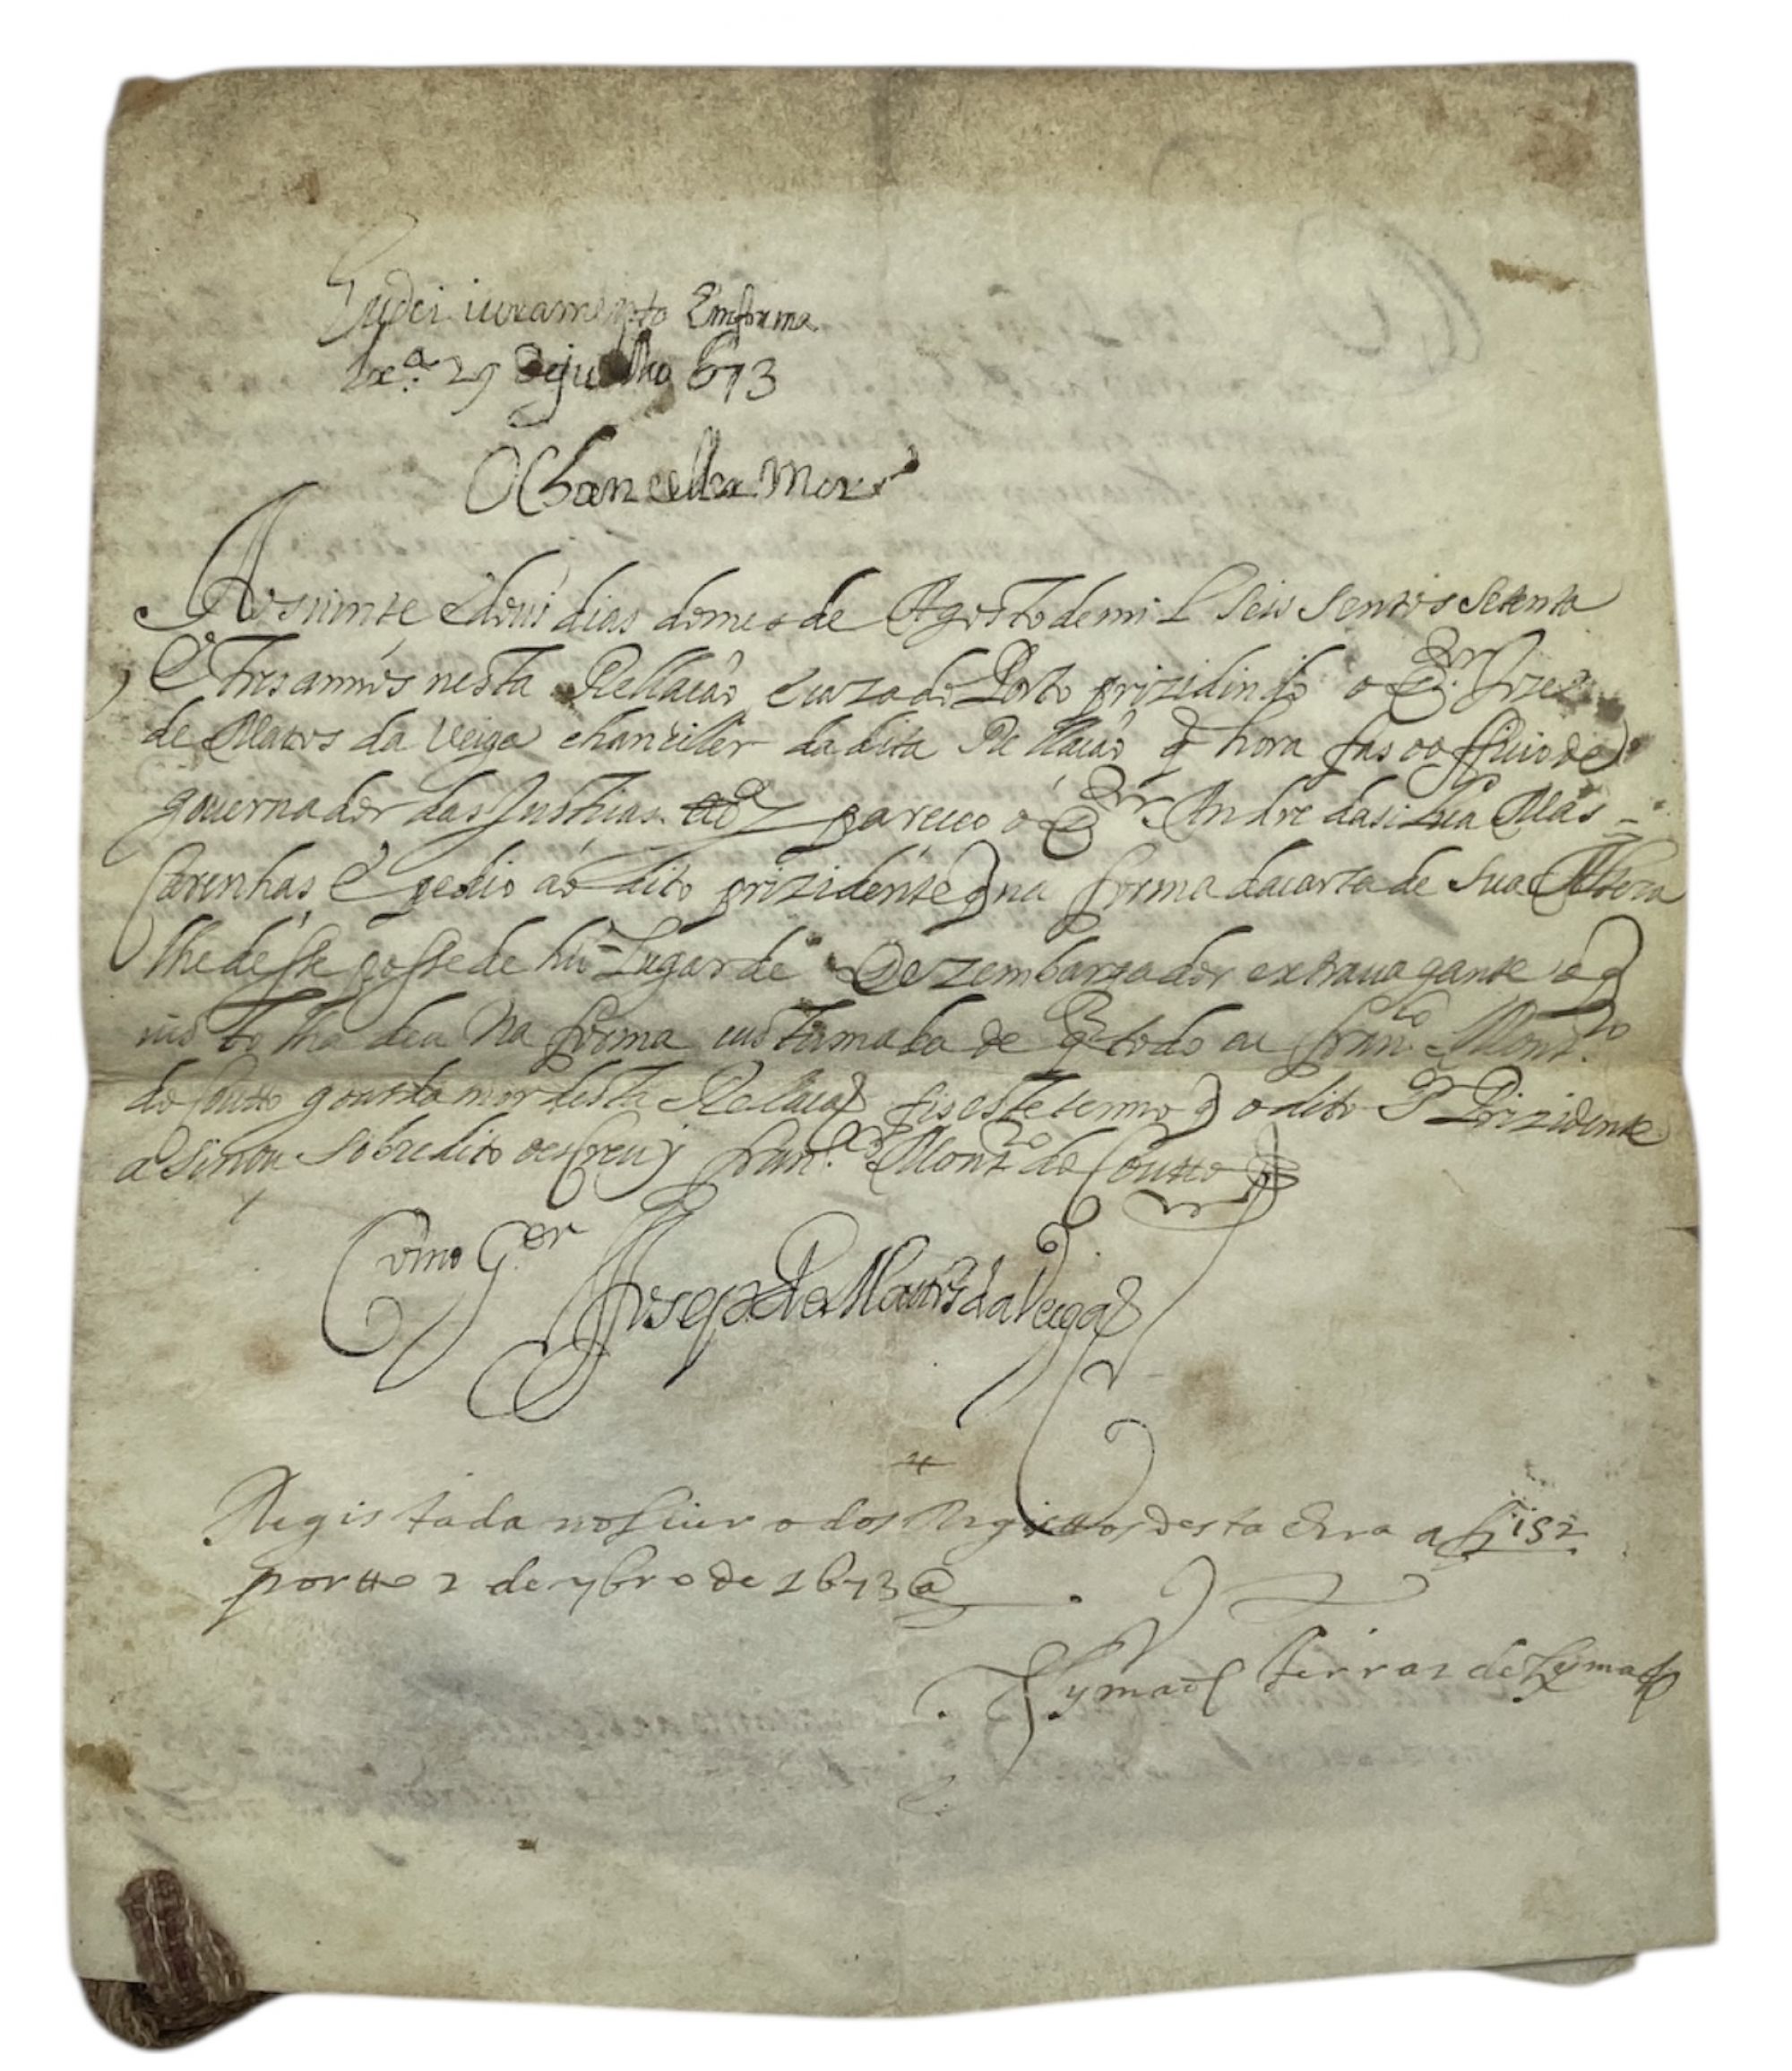 Eu dei iuramento Emforma
Lxª 29 de julho 673
O Chanceller Mor
Aos uinte e dous dias do mes de Agosto de mil Seis Sentos Setenta
E tres annos nesta Rellacaõ e caza do Porto prizidindo o D.or Jozeph
de Mattos da Veiga chanciller da dita Rellacaõ q hora fas o officio de
gouernador das Justicas pareceo o D.or Andre da Silua Mas-
carenhas, E pedio aó dito prizidente q na forma da carta de Sua Alteza
lhe desse posse de hũ Lugar de Dezembargador extrauagante o q
uisto lha deu Na forma custumada de q todo eu fran.co Mont.ro
do Coutto goarda mor desta Rellacaõ fis este termo q o dito S.r Prizidente
asinou Sobredito o escreuy fran.co Mont.ro do Coutto
Como G.or Joseph de Mattos da Veiga
Registada no Liuro dos Registtos desta Era a fl 152
portto 2 de 7bro de 1673 @
Symaõ ferras de Lyma